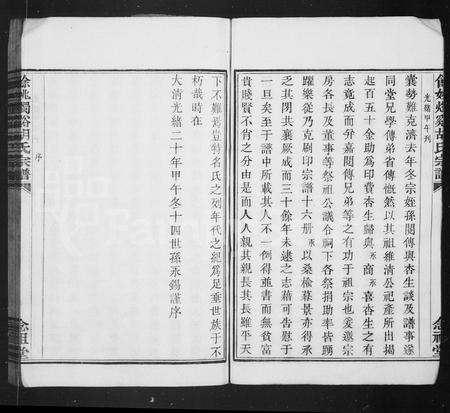 光緒甲午列
囊勢難克濟去年冬宗姪孫閏傳與杏生談及譜事遂
同堂兄學傳弟省傳慨然以其祖維清公祀產所出揭
起百五十金助爲印費杏生歸與 永商 永喜杏生之有
志竟成而弁嘉閏傳兄弟等之有功于祖宗也爰邀宗
房各長及董事等祭祖公議令祠下各祭捐助率皆踴
躍樂從乃克刷印宗譜十六册 永以桑榆暮景亦得承
乏其間共襄厥成而三十餘年未逮之志藉可告慰于
一旦矣至于譜中所載其人不一例得並書而無貧富
貴賤賢不肖之分由是而人人親其親長其長雖平天
下不難焉豈特名氏之列年代之紀爲足垂世族于不
朽哉時在
大清光緒二十年甲午冬十四世孫永錫謹序
餘姚燭谿胡氏宗譜
序
念祖堂